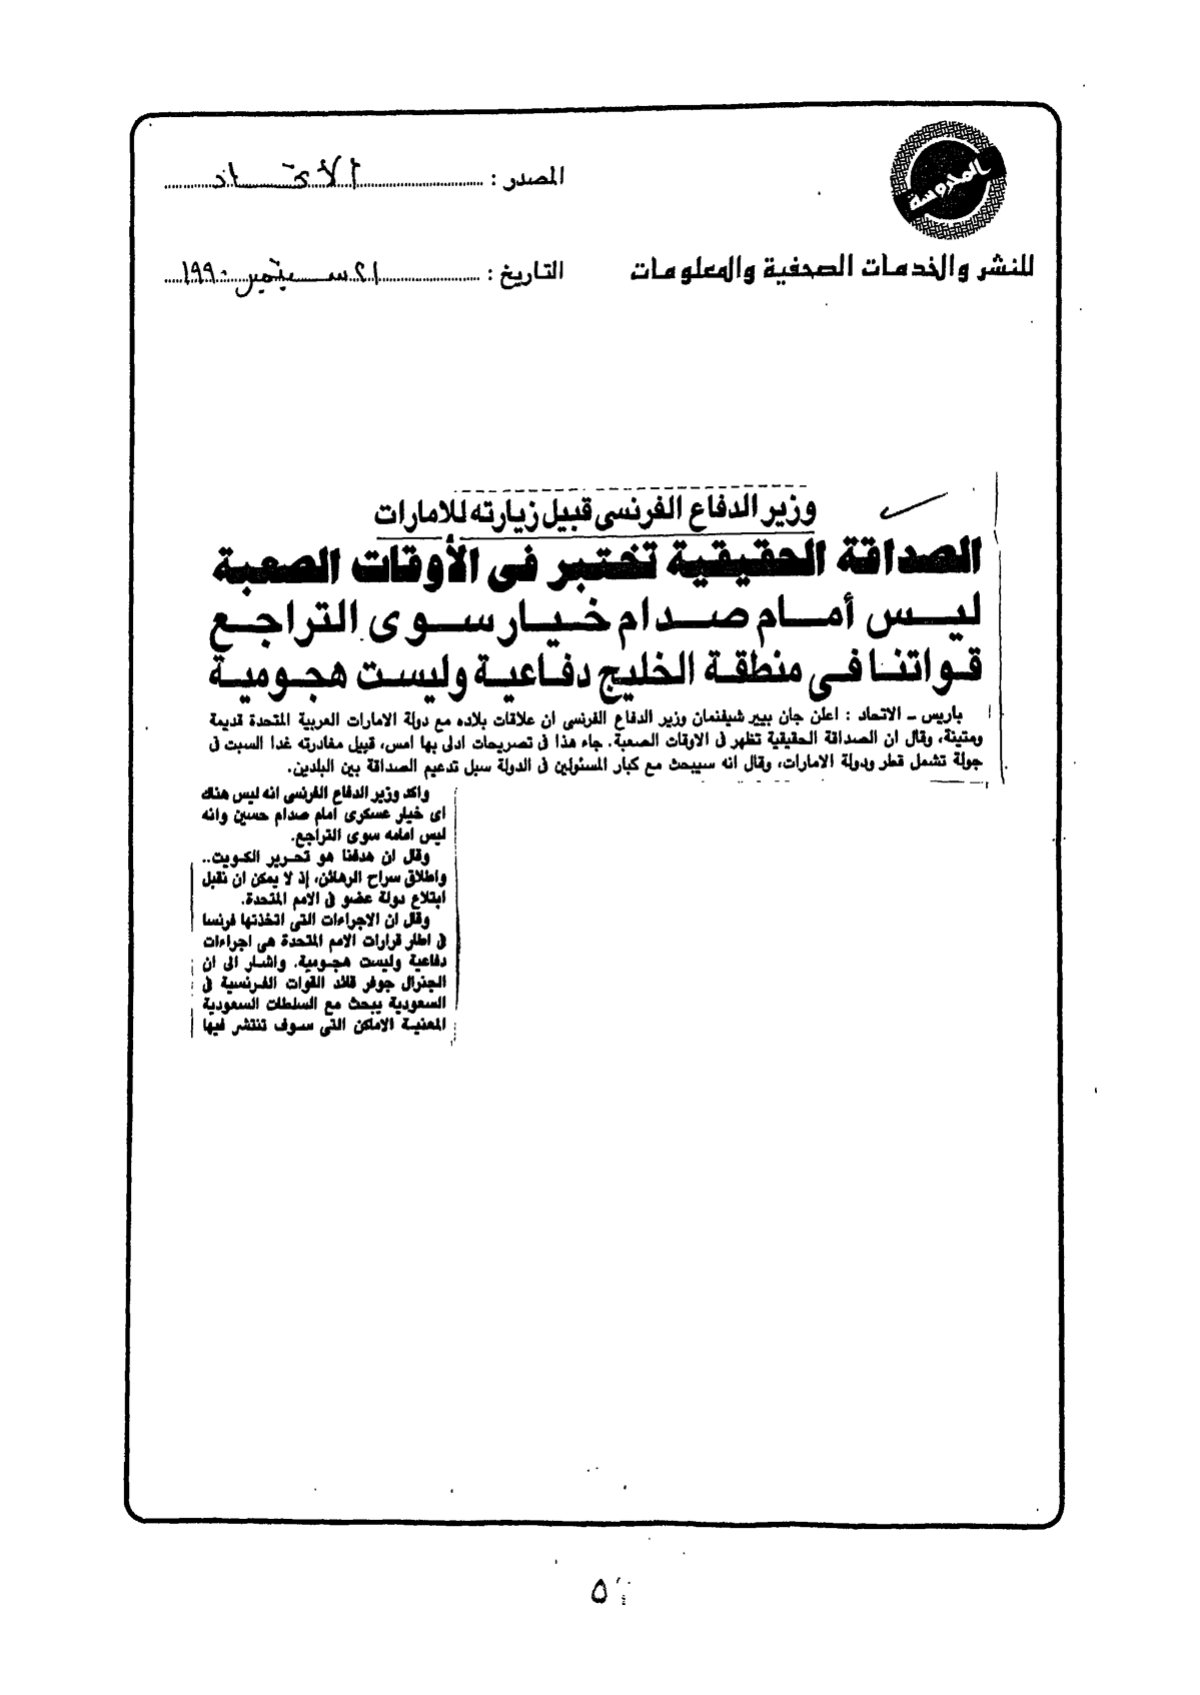 المحروسة
المصدر : الأتحاد
للنشر والخدمات الصحفية والمعلومات
التاريخ : ٢١ سبتمبر ١٩٩٠
وزير الدفاع الفرنسى قبيل زيارته للامارات
الصداقة الحقيقية تختبر فى الأوقات الصعبة
ليس أمام صدام خيار سوى التراجع
قواتنا فى منطقة الخليج دفاعية وليست هجومية
باريس ـ الاتحاد : اعلن جان بيير شيفنمان وزير الدفاع الفرنسى ان علاقات بلاده مع دولة الامارات العربية المتحدة قديمة
ومتينة، وقال ان الصداقة الحقيقية تظهر فى الاوقات الصعبة. جاء هذا فى تصريحات ادلى بها امس، قبيل مغادرته غدا السبت فى
جولة تشمل قطر ودولة الامارات، وقال انه سيبحث مع كبار المسئولين فى الدولة سبل تدعيم الصداقة بين البلدين.
واكد وزير الدفاع الفرنسى انه ليس هناك
اى خيار عسكرى امام صدام حسين وانه
ليس امامه سوى التراجع.
وقال ان هدفنا هو تحرير الكويت..
واطلاق سراح الرهائن، إذ لا يمكن ان نقبل
ابتلاع دولة عضو فى الامم المتحدة.
وقال ان الاجراءات التى اتخذتها فرنسا
فى اطار قرارات الامم المتحدة هى اجراءات
دفاعية وليست هجومية. واشار الى ان
الجنرال جوفر قائد القوات الفرنسية فى
السعودية يبحث مع السلطات السعودية
المعنية الاماكن التى سوف تنتشر فيها